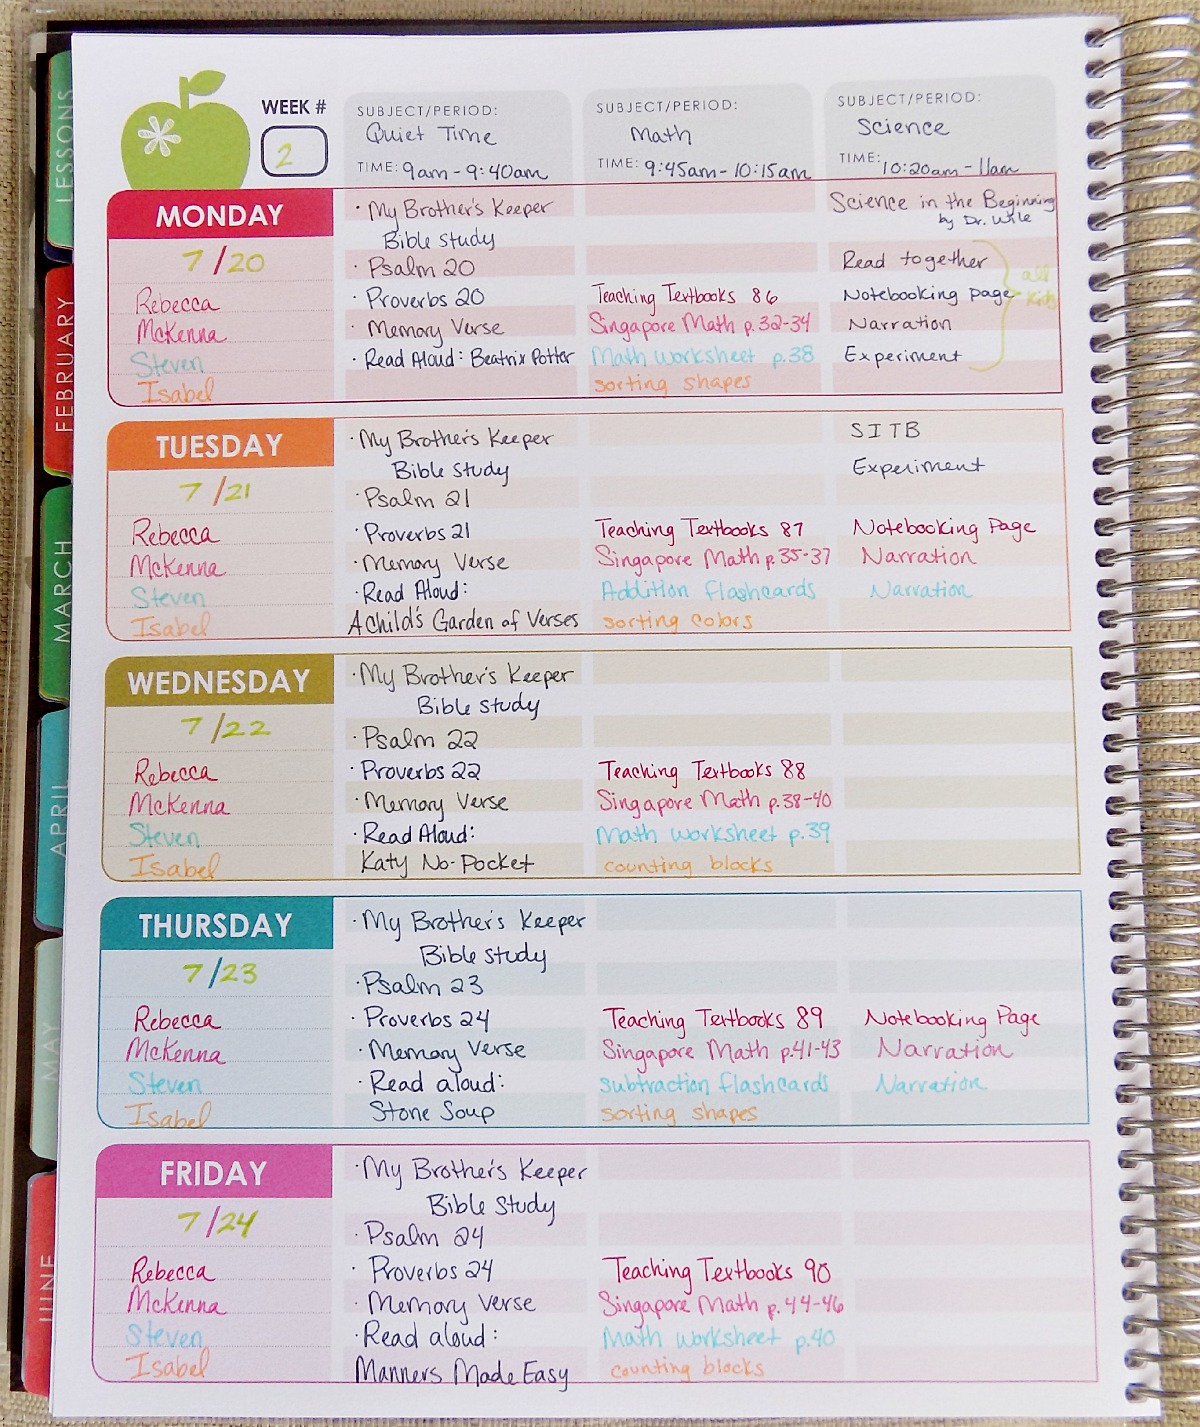 LESSONS
FEBRUARY
MARCH
APRIL
MAY
JUNE
WEEK #
2
SUBJECT/PERIOD:
Quiet Time
TIME: 9am - 9:40am
SUBJECT/PERIOD:
Math
TIME: 9:45am - 10:15am
SUBJECT/PERIOD:
Science
TIME: 10:20am - 11am
MONDAY
7/20
Rebecca
McKenna
Steven
Isabel
· My Brother's Keeper
Bible Study
· Psalm 20
· Proverbs 20
· Memory Verse
· Read Aloud: Beatrix Potter
Teaching Textbooks 86
Singapore Math p.32-34
Math worksheet p.38
sorting shapes
Science in the Beginning
by Dr. Wile
Read together
Notebooking page
Narration
Experiment
all
kids
TUESDAY
7/21
Rebecca
McKenna
Steven
Isabel
· My Brother's Keeper
Bible Study
· Psalm 21
· Proverbs 21
· Memory Verse
· Read Aloud:
A Child's Garden of Verses
Teaching Textbooks 87
Singapore Math p.35-37
Addition flashcards
sorting colors
SITB
Experiment
Notebooking Page
Narration
Narration
WEDNESDAY
7/22
Rebecca
McKenna
Steven
Isabel
· My Brother's Keeper
Bible Study
· Psalm 22
· Proverbs 22
· Memory Verse
· Read Aloud:
Katy No-Pocket
Teaching Textbooks 88
Singapore Math p.38-40
Math worksheet p.39
counting blocks
THURSDAY
7/23
Rebecca
McKenna
Steven
Isabel
· My Brother's Keeper
Bible Study
· Psalm 23
· Proverbs 24
· Memory Verse
· Read aloud:
Stone Soup
Teaching Textbooks 89
Singapore Math p.41-43
subtraction flashcards
sorting shapes
Notebooking Page
Narration
Narration
FRIDAY
7/24
Rebecca
McKenna
Steven
Isabel
· My Brother's Keeper
Bible Study
· Psalm 24
· Proverbs 24
· Memory Verse
· Read aloud:
Manners Made Easy
Teaching Textbooks 90
Singapore Math p.44-46
Math worksheet p.40
counting blocks